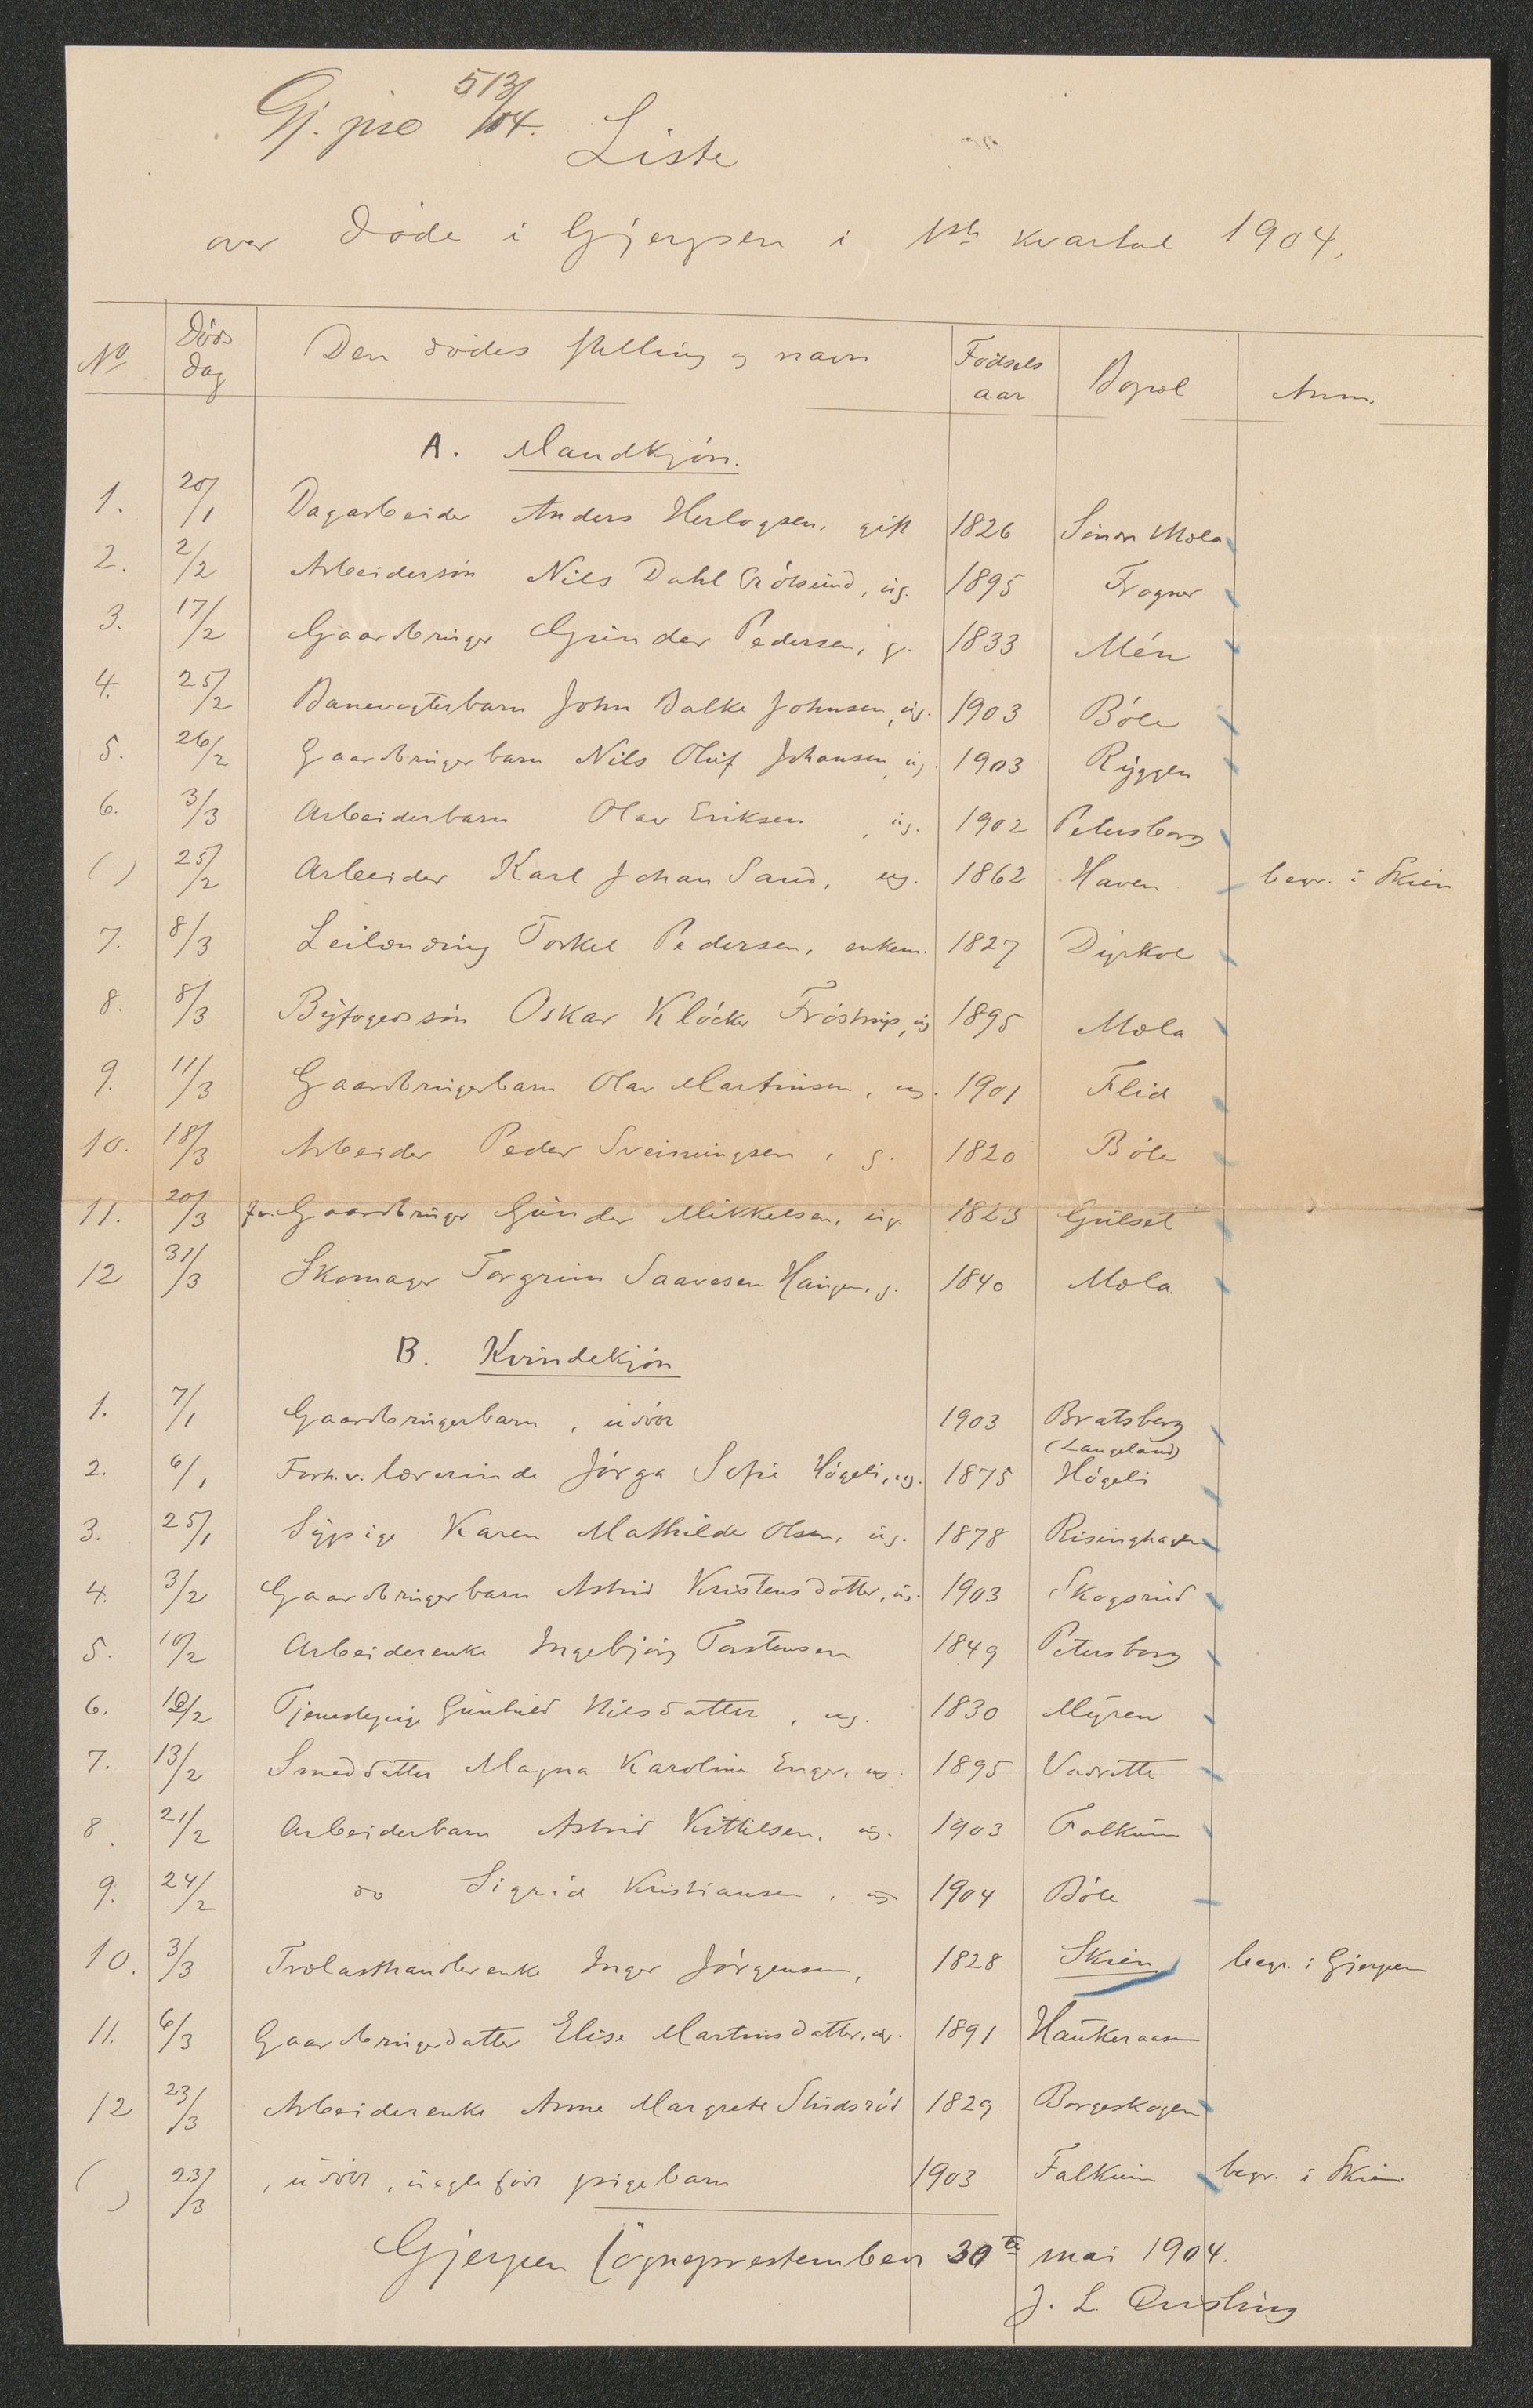 Gj. pro 513/04.
Liste
over døde i Gjerpen i 1ste kvartal 1904.
No Døds Dag Den dødes stilling og navn Fødsels aar Bopæl Anm.
A. Mandkjøn.
1. 20/1 Dagarbeider Anders Herlogsen, gift 1826 Søndre Mæla
2. 2/2 Arbeidersøn Nils Dahl Grøtsund, ug. 1895 Frogner
3. 17/2 Gaardbruger Gunder Pedersen, g. 1833 Mén
4. 25/2 Banevogterbarn John Balke Johnsen, ug. 1903 Böle
5. 26/2 Gaardbrugerbarn Nils Oluf Johansen, ug. 1903 Ryggen
6. 3/3 Arbeiderbarn Olav Eriksen, ug. 1902 Petersborg
( ) 25/2 Arbeider Karl Johan Sand, ug. 1862 Haven begr. i Skien
7. 8/3 Leilænding Torkel Pedersen, enkem. 1827 Dyrkol
8. 8/3 Byfogedssøn Oskar Klöcker Fröstrup, ug 1895 Mæla
9. 11/3 Gaardbrugerbarn Olav Martinsen, ug. 1901 Flid
10. 18/3 Arbeider Peder Sveinungsen, g. 1820 Böle
11. 20/3 fv. Gaardbruger Gunder Mikkelsen, ug. 1823 Gulset
12 31/3 Skomager Torgrim Saavesen Haugen, g. 1840 Mæla
B. Kvindekjøn
1. 7/1 Gaardbrugerbarn, udøbt 1903 Bratsberg
(Langeland)
2. 6/1 Forh. v. lærerinde Jörga Sofie Högeli, ug. 1875 Högeli
3. 25/1 Sypige Karen Mathilde Olsen, ug. 1878 Risinghaven
4. 3/2 Gaardbrugerbarn Astrid Kristensdatter, ug. 1903 Skogsrud
5. 10/2 Arbeiderenke Ingebjörg Torstensen 1849 Petersborg
6. 12/2 Tjenestepige Gunhild Nilsdatter, ug. 1830 Myren
7. 13/2 Smeddatter Magna Karoline Enger, ug. 1895 Vadrette
8. 21/2 Arbeiderbarn Astrid Kittilsen, ug. 1903 Falkum
9. 24/2 do Sigrid Kristiansen, ug 1904 Böle
10. 3/3 Trælasthandlerenke Inger Jörgensen, 1828 Skien begr. i Gjerpen
11. 6/3 Gaardbrugerdatter Elise Martinsdatter, ug. 1891 Haukeraasen
12 23/3 Arbeiderenke Anne Margrete Studsröd 1829 Borgeskogen
( ) 23/3 , udøbt, uægte født pigebarn 1903 Falkum begr. i Skien
Gjerpen Sogneprestembed 30te mai 1904.
J. L. Quisling